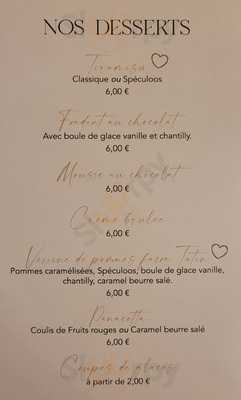 NOS DESSERTS
Tiramisu
Classique ou Spéculoos
6,00 €
Fondant au chocolat
Avec boule de glace vanille et chantilly.
6,00 €
Mousse au chocolat
6,00 €
Crème brulée
6,00 €
Verrine de pommes façon Tatin
Pommes caramélisées, Spéculoos, boule de glace vanille,
chantilly, caramel beurre salé.
6,00 €
Panacotta
Coulis de Fruits rouges ou Caramel beurre salé
6,00 €
Coupes de glaces
à partir de 2,00 €